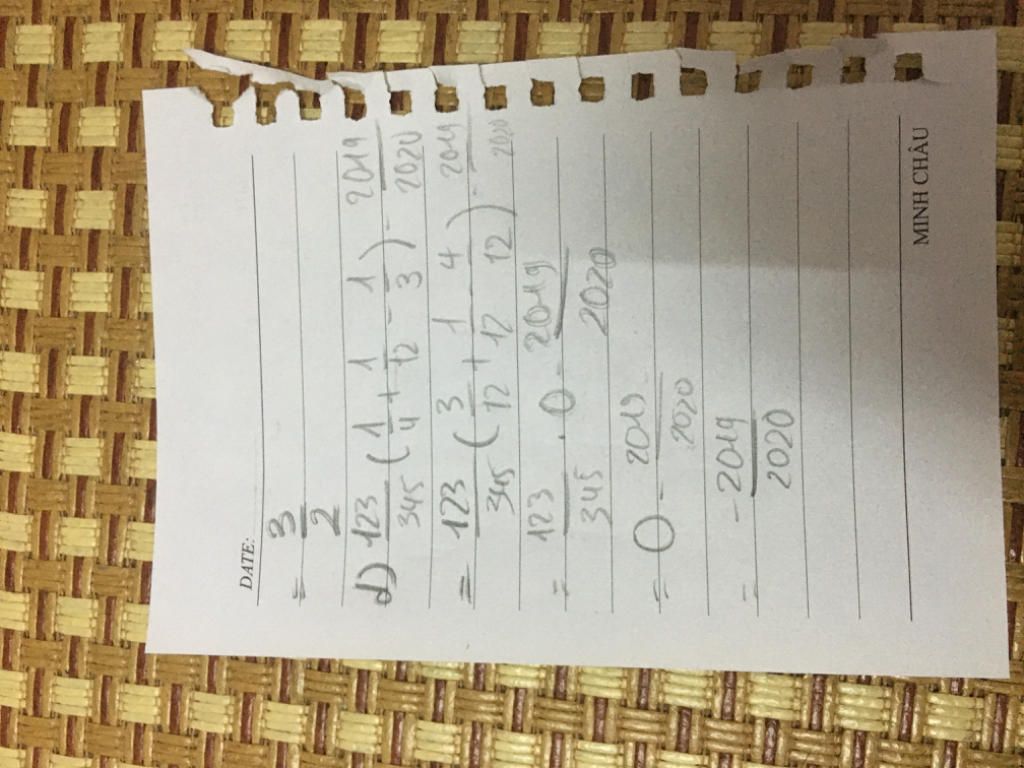 DATE:
= 3/2
d) 123/345 (1/4 + 1/12 - 1/3) - 2019/2020
= 123/345 (3/12 + 1/12 - 4/12) - 2019/2020
= 123/345 . 0 - 2019/2020
= 0 - 2019/2020
= - 2019/2020
MINH CHÂU